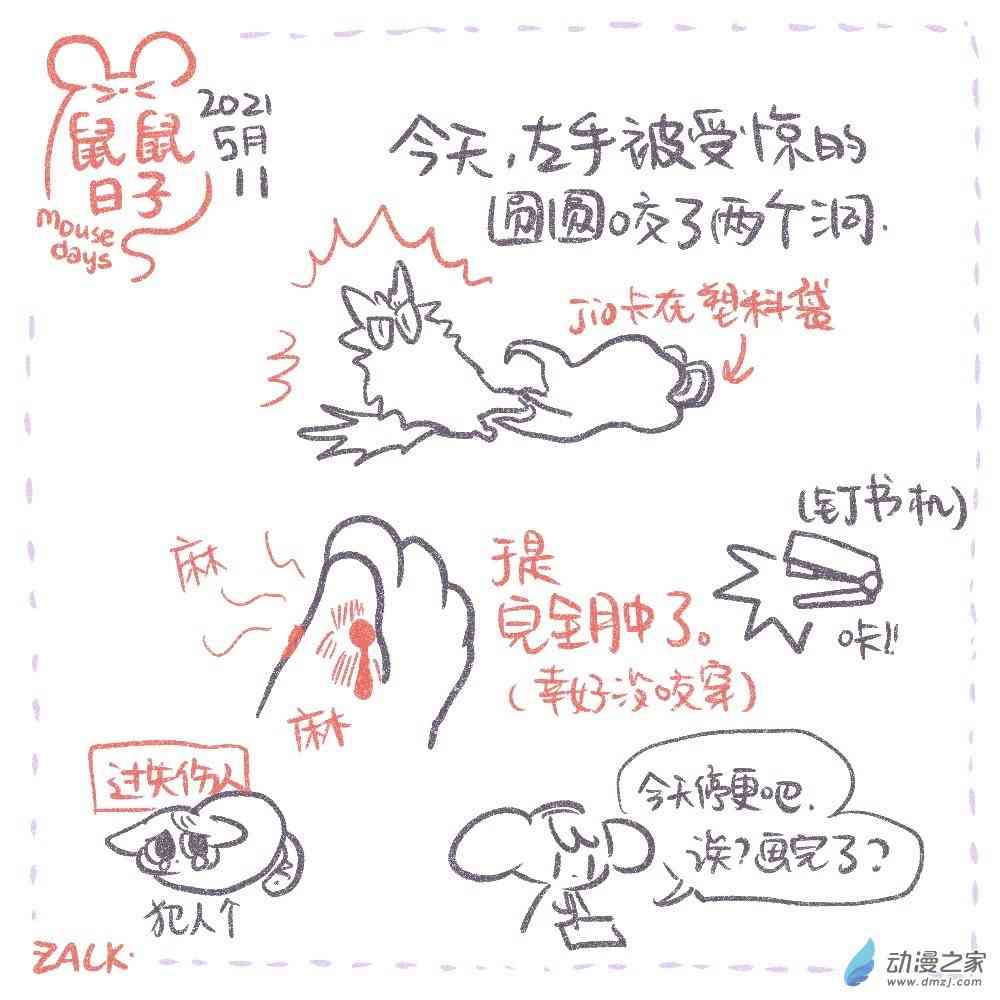 鼠鼠
日子
mouse
days
2021
5月
11
今天,左手被受惊的
圆圆咬了两个洞.
Jio卡在塑料袋
(钉书机)
麻
于是
完全肿了。
咔!!
(幸好没咬穿)
麻
过失伤人
犯人个
今天停更吧.
诶?画完了?
ZALK.
动漫之家
www.dmzj.com